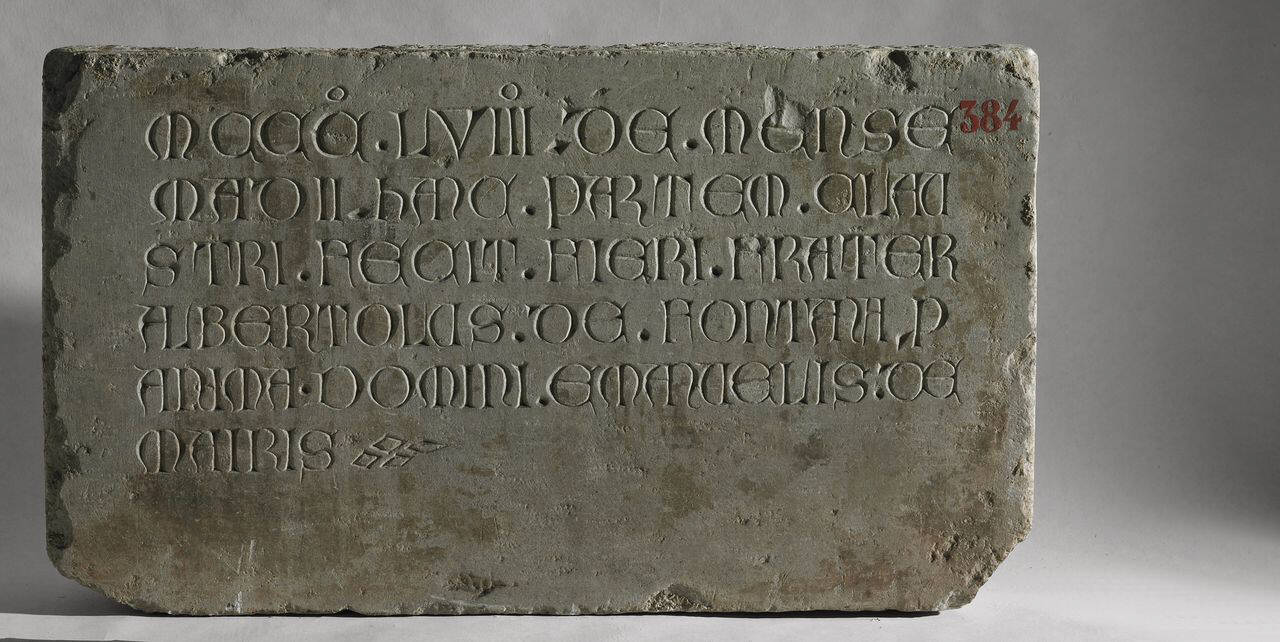 MCCC°.LVIII°.DE.MENSE 384
MADII.HANC.PARTEM.CLAU
STRI.FECIT.FIERI.FRATER
ALBERTOLUS.DE.FONTANA.P
ANIMA.DOMINI.EMANUELIS:DE
MAIRIS